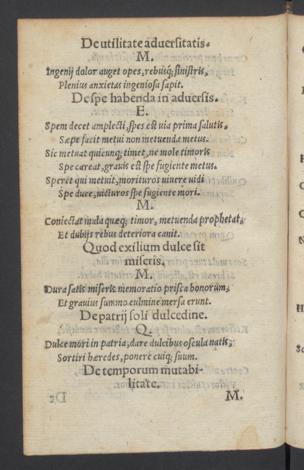 De utilitate aduersitatis.
M.
Ingenij dolor auget opes, rebusq; sinistris,
Plenius anxietas ingeniosa sapit.
De spe habenda in aduersis.
E.
Spem decet amplecti, spes est uia prima salutis,
Sæpe facit metui non metuenda metus.
Sic metuat quicunq; timet, ne mole timoris
Spe careat, grauis est spe fugiente metus.
Speret qui metuit, morituros uiuere uidi
Spe duce, uicturos spe fugiente mori.
M.
Coniectat mala quæq; timor, metuenda prophetat,
Et dubijs rebus deteriora canit.
Quod exilium dulce sit
miseris.
M.
Dura satis miseris memoratio prisca bonorum,
Et grauius summo culmine mersa erunt.
De patrij soli dulcedine.
Q.
Dulce mori in patria, dare dulcibus oscula natis,
Sortiri hæredes, ponere cuiq; suum.
De temporum mutabi-
litate.
M.